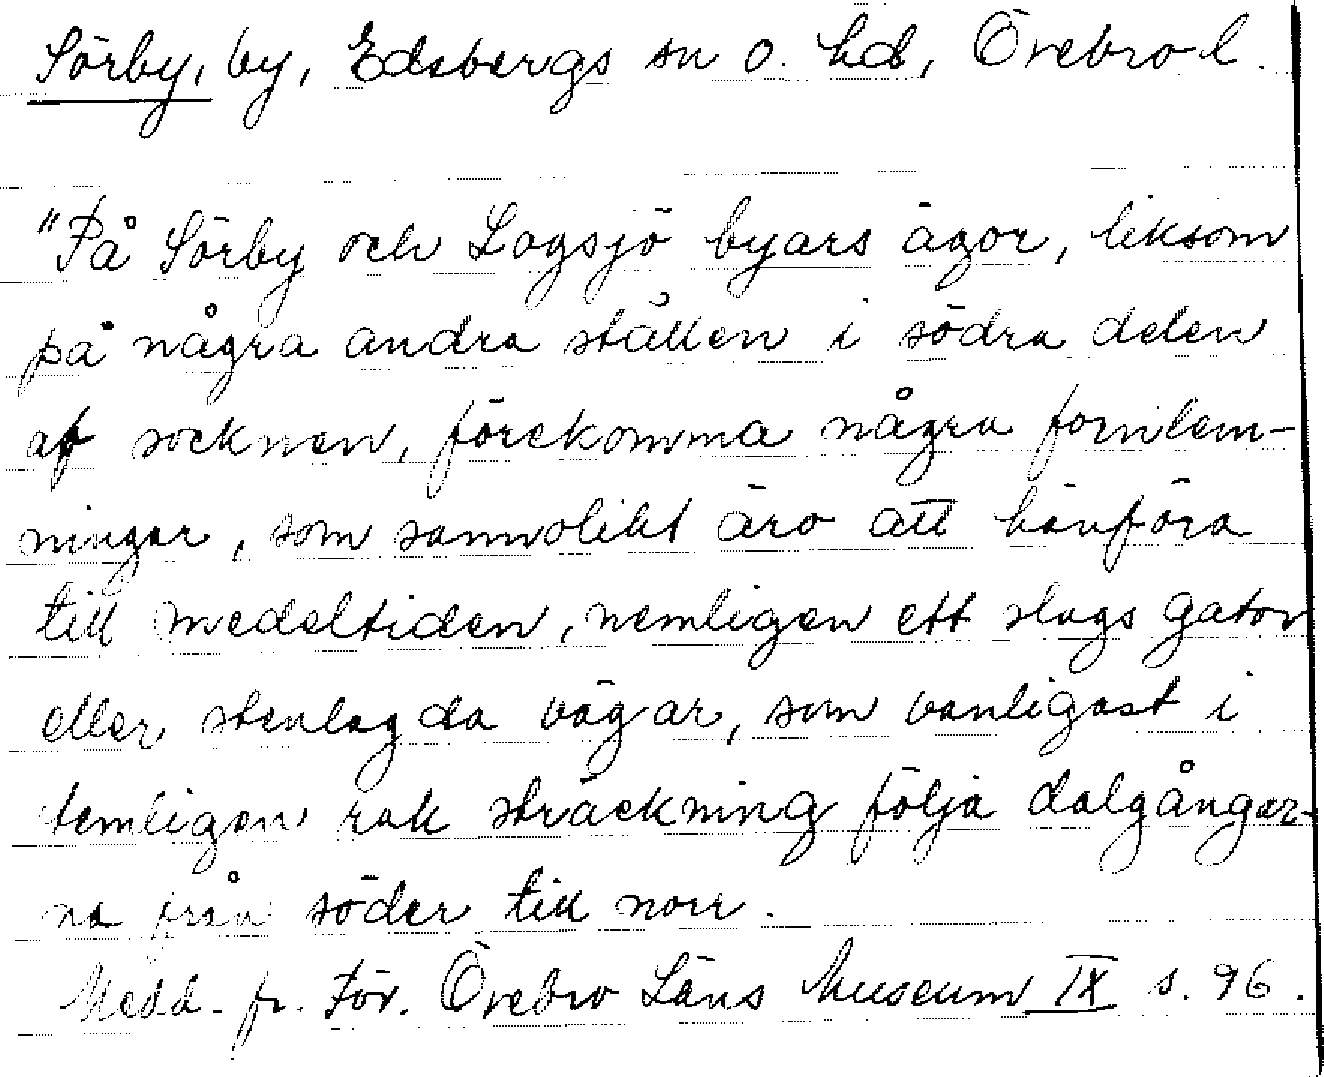 Sörby, by, Edsbergs sn o. hd, Örebro l.
"På Sörby och Logsjö byars ägor, liksom
på några andra ställen i södra delen
af socknen, förekomma några fornlem-
ningar, som sannolikt äro att hänföra
till medeltiden, nemligen ett slags gator
eller stenlagda vägar, som vanligast i
temligen rak sträckning följa dalgånger-
na från söder till norr.
Medd. fr. För. Örebro Läns Museum IX s. 96.